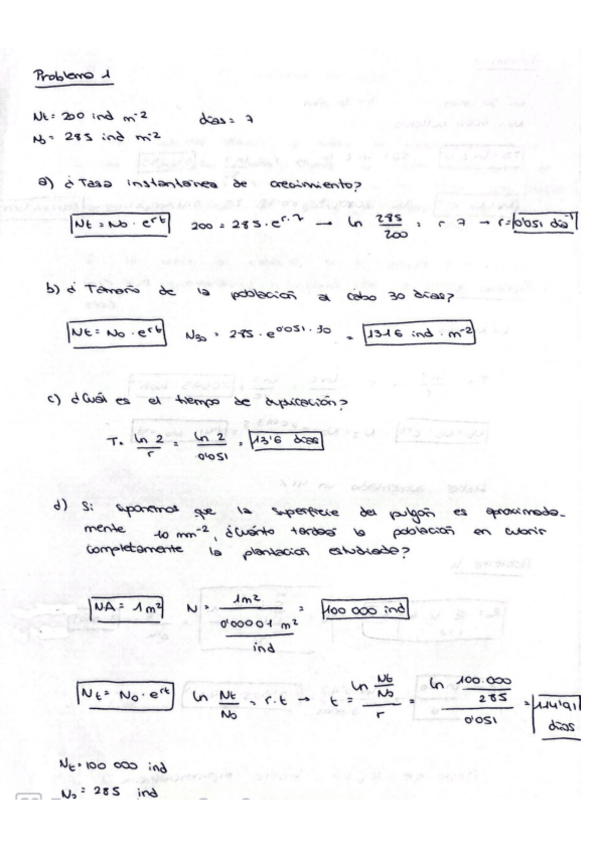 Problema 1
Nt = 200 ind m-2 días = 7
No = 285 ind m-2
a) ¿Tasa instantánea de crecimiento?
Nt = No · e^rt 200 = 285 · e^r.7 → ln 285/200 = r 7 → r = 0'051 día-1
b) ¿Tamaño de la población al cabo 30 días?
Nt = No · e^rt N30 = 285 · e^0'051·30 = 1316 ind · m-2
c) ¿Cuál es el tiempo de duplicación?
T = ln 2/r = ln 2/0'051 = 13'6 días
d) Si suponemos que la superficie del pulgón es aproximada-
mente 10 mm-2, ¿Cuánto tardará la población en cubrir
completamente la plantación estudiada?
NA = 1 m2 N = 1m2/0'00001 m2/ind = 100 000 ind
Nt = No · e^rt ln Nt/No = r.t → t = ln Nt/No / r = ln 100.000/285 / 0'051 = 114'91 días
Nt = 100 000 ind
No = 285 ind